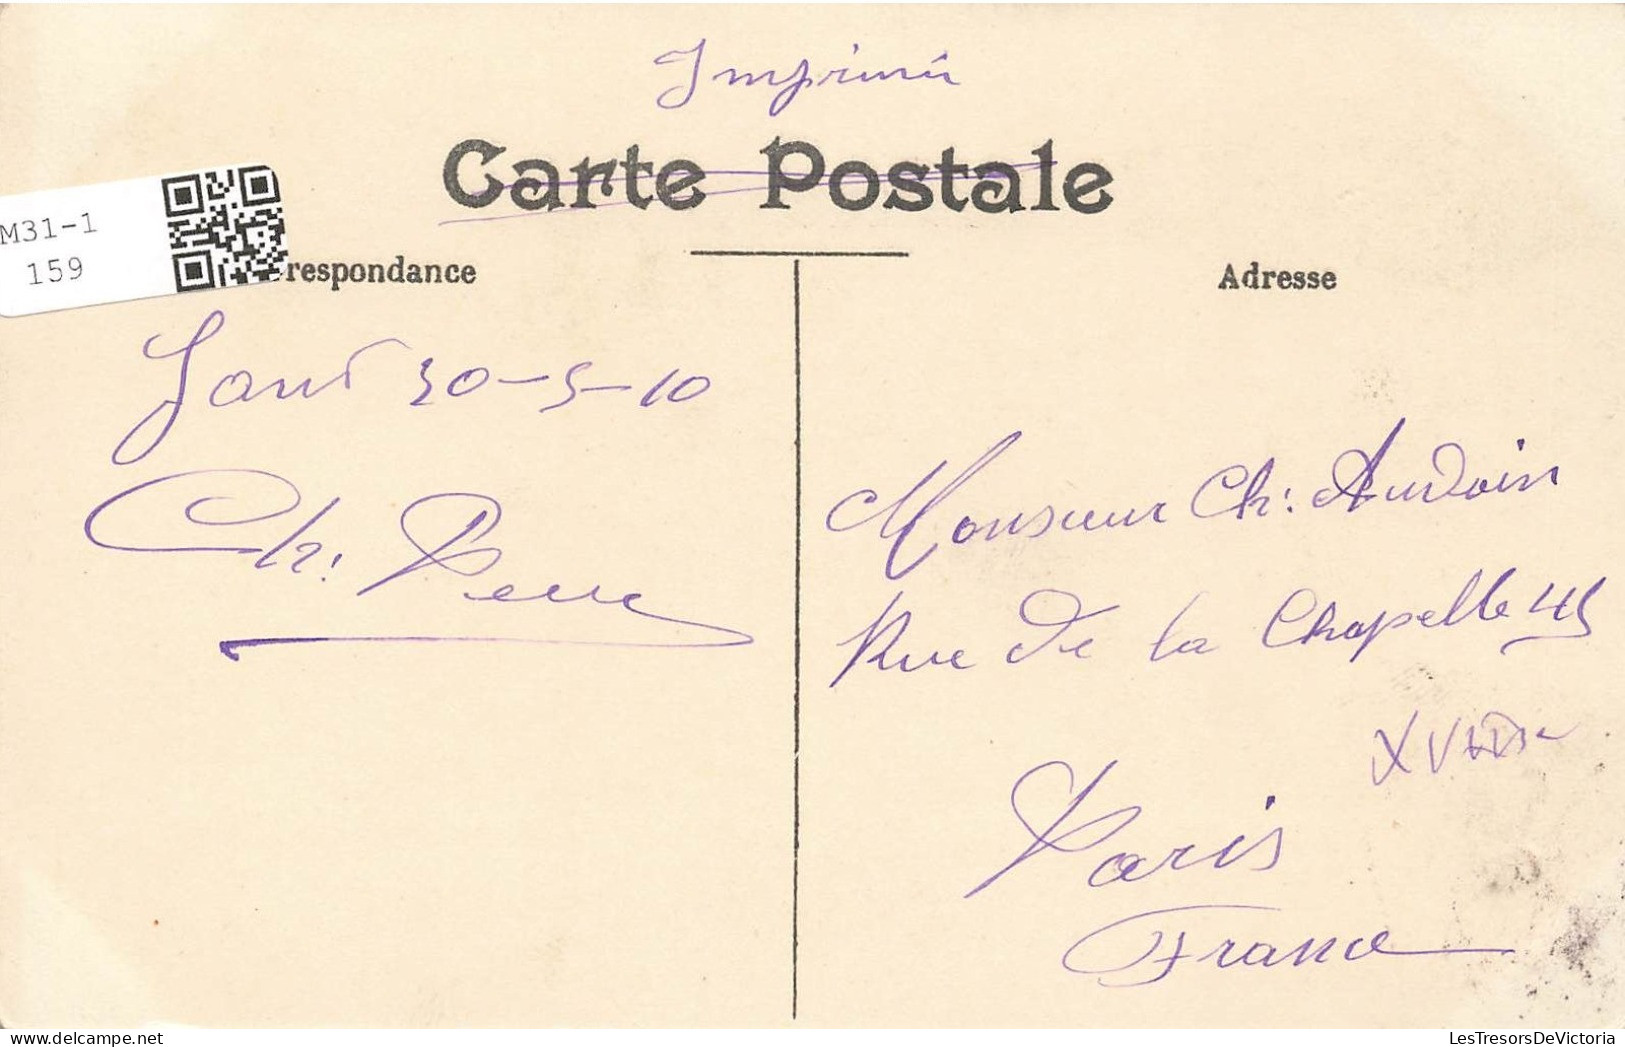 Imprimé
Carte Postale
M31-1
159
respondance
Adresse
Gand 30-5-10
Ch.
Monsieur Ch: Audoin
Rue de la Chapelle 45
Paris
France
LesTresorsDeVictoria